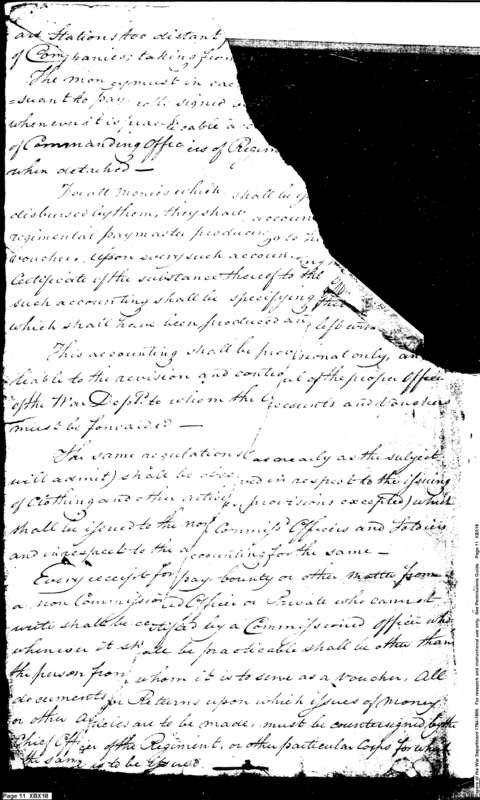 and Stations too distant
of Companies; taking from
The money must in each
=suant to pay rolls signed
whenever it is practicable
of Commanding Officers of Regim
when detached —
For all monies which shall be
disbursed by them, they shall account
regimental paymaster producing to
voucher. Upon every such accounting
Certificate of the substance thereof to the
such accounting shall be specifying the
which shall have been produced and left with
This accounting shall be provisional only, and
liable to the revision and controul of the proper Officer
of the War Dept. to whom the Accounts and Vouchers
must be forwarded —
The same regulations (as nearly as the subject
will admit) shall be observed in respect to the issuing
of Clothing and other articles (provisions excepted) which
shall be issued to the non Commissd. Officers and Soldiers
and in respect to the accounting for the same —
Every receipt for pay bounty or other matter from
a non Commissioned Officer or Private who cannot
write shall be certified by a Commissioned officer who
whenever it shall be practicable shall be other than
the person from whom it is to serve as a voucher. All
documents or Returns upon which issues of money
or other Articles are to be made, must be countersigned by the
Chief Officer of the Regiment, or other particular Corps for which
the same is to be issued
Page 11 XBX18
of the War Department 1784-1800. For research and instructional use only. See Permissions Guide. Page 11 XBX18